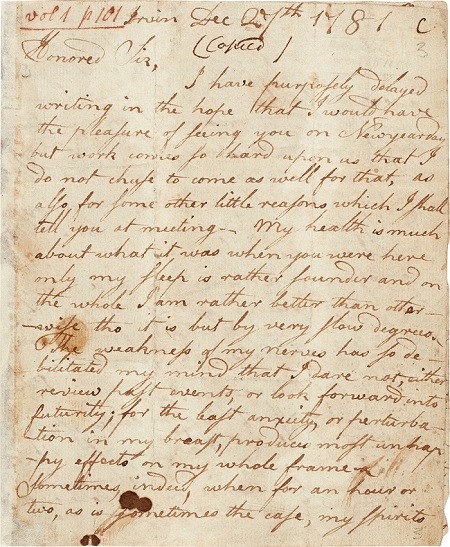 vol 1 p 101 Irvin Dec 27th 1781 C
(Copied) 3
Honored Sir,
I have purposely delayed
writing in the hope that I would have
the pleasure of seeing you on Newyearday
but work comes so hard upon us that I
do not chuse to come as well for that, as
also, for some other little reasons which I shall
tell you at meeting.— My health is much
about what it was when you were here
only my sleep is rather sounder and on
the whole I am rather better than other-
-wise tho it is but by very slow degrees.—
The weakness of my nerves has so de-
bilitated my mind that I dare not, either
review past events, or look forward into
futurity; for the least anxiety, or perturba-
-tion in my breast, produces most unhap-
-py effects on my whole frame.—
Sometimes, indeed, when for an hour or
two, as is sometimes the case, my spirits